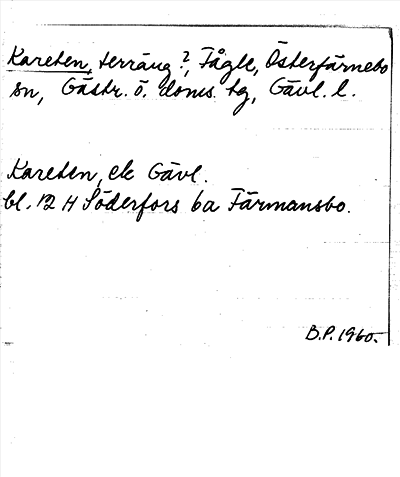 Kareten, terräng?, Fågle, Österfärnebo
sn, Gästr. ö. doms. tg, Gävl. l.
Kareten, ek Gävl.
bl. 12 H Söderfors ba Färmansbo.
B.P. 1960.